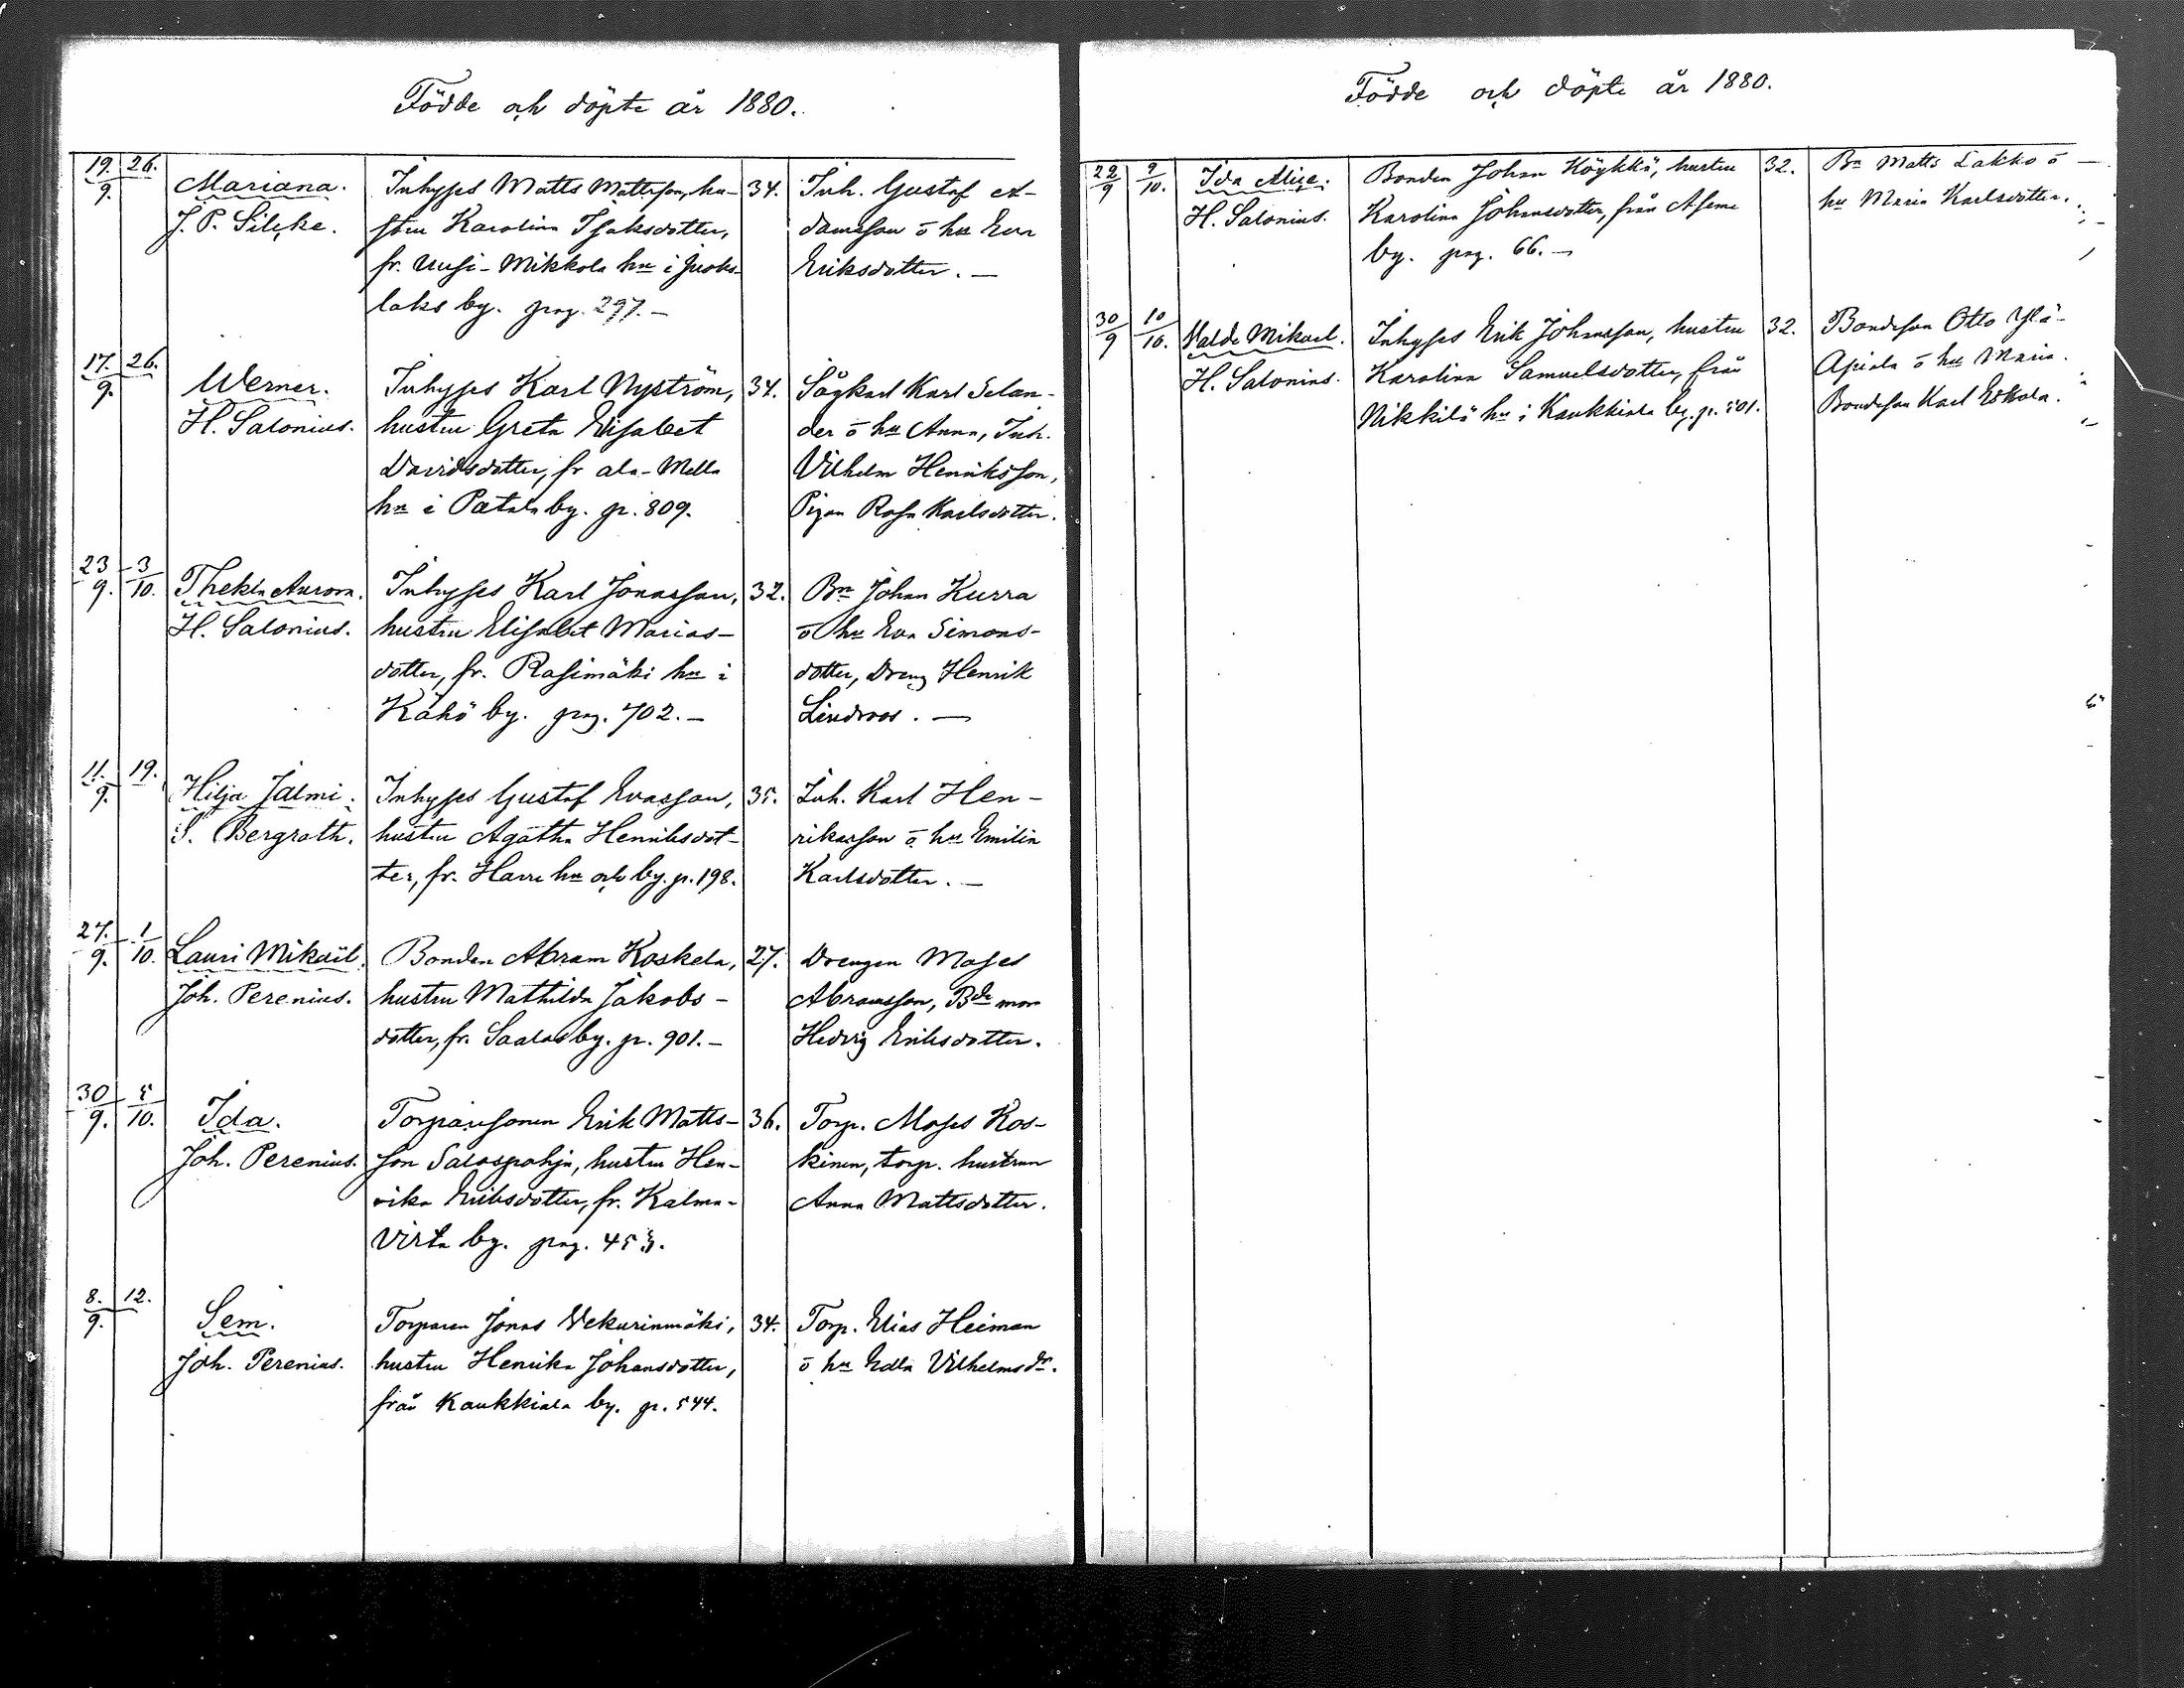 Födde och döpte år 1880.
19. 26.
9.
Mariana.
J. P. Silcke.
Inhyses Matts Mattsson, hu- 34.
stru Karolina Isaksdotter,
fr. Uusi-Mikkola hn i
laks by. pag. 297.-
Inh. Gustaf A-
damsson o hu Eva
Eriksdotter. —
17. 26.
9.
Werner.
H. Salonius.
Inhyses Karl Nyström, 34.
hustru Greta Elisabet
Davidsdotter, fr ala-Mella
hn i Patala by. p. 809.
Sågkarl Karl Selan-
der o hu Anna, Inh.
Vilhelm Henriksson,
Pigan Rosa Karlsdotter.
23 3
9. 10.
Thekla Aurora.
H. Salonius.
Inhyses Karl Jonasson, 32.
hustru Elisabet Marias-
dotter, fr. Rasimäki hn i
Kähö by. pag. 702. —
Bn Johan Kurra
o hu Eva Simons-
dotter, Dreng Henrik
Lindroos. —
11. 19.
9.
Hilja Jalmi.
S. Bergroth.
Inhyses Gustaf Evasson, 35.
hustru Agatha Henriksdot-
ter, fr. Harri hn och by. p. 198.
Inh. Karl Hen-
riksson o hu Emilia
Karlsdotter. —
27. 1
9. 10.
Lauri Mikael.
Joh. Perenius.
Bonden Abram Koskela, 27.
hustru Mathilda Jakobs-
dotter, fr. Saalas by. p. 901. —
Drengen Moses
Abramsson, Bde mor
Hedvig Eriksdotter.
30 5
9. 10.
Ida.
Joh. Perenius.
Torparesonen Erik Matts- 36.
son Salospohja, hustru Hen-
rika Eriksdotter, fr. Kalma-
virta by. pag. 453.
Torp. Moses Kos-
kinen, torp. hustrun
Anna Mattsdotter.
8. 12.
9.
Sem.
Joh. Perenius.
Torparen Jonas Vekurinmäki, 34.
hustru Henrika Johansdotter,
från Kaukkiala by. p. 544.
Torp. Elias Heiman
o hu Edla Vilhelmsdr.
Födde och döpte år 1880.
22 9
9 10.
Ida Alice.
H. Salonius.
Bonden Johan Köykkä, hustru 32.
Karolina Johansdotter, från Aseme
by. pag. 66. —
Bn Matts Lakko o
hu Maria Karlsdotter.
30 10
9 10.
Valde Mikael.
H. Salonius.
Inhyses Erik Johansson, hustru 32.
Karolina Samuelsdotter, från
Nikkilä hn i Kaukkiala by. p. 501.
Bondeson Otto Ylä-
Apiala o hu Maria.
Bondeson Karl Eskola.